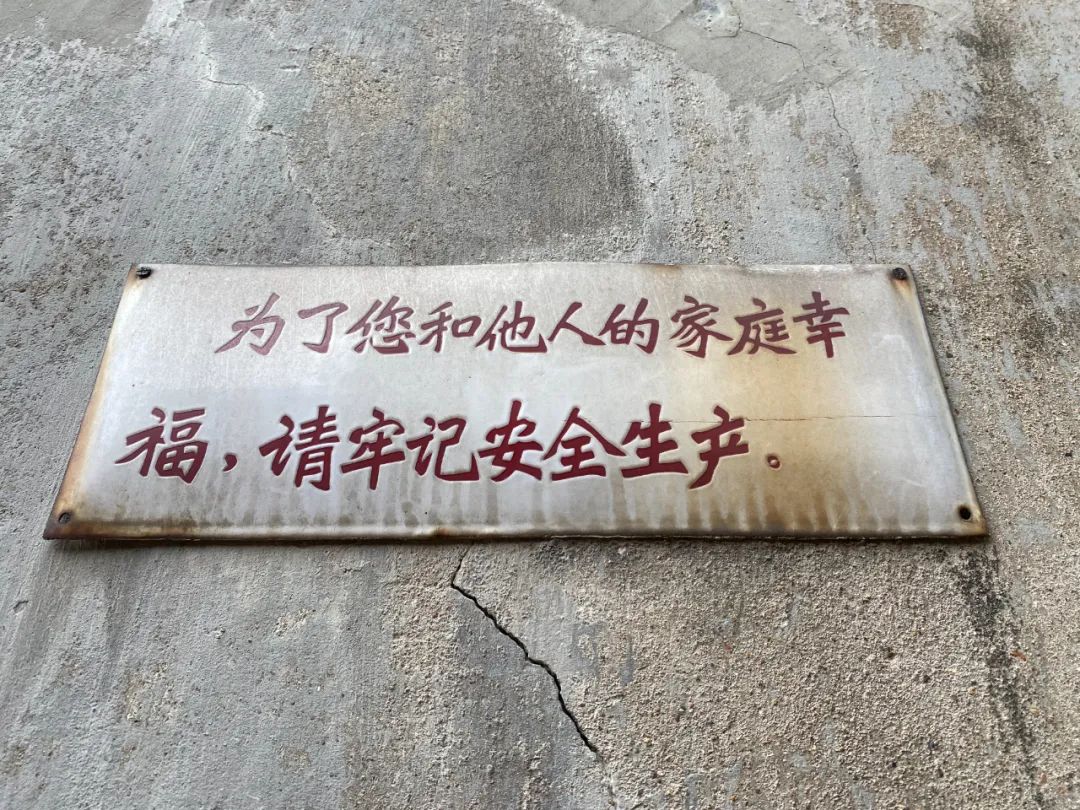 为了您和他人的家庭幸
福，请牢记安全生产。